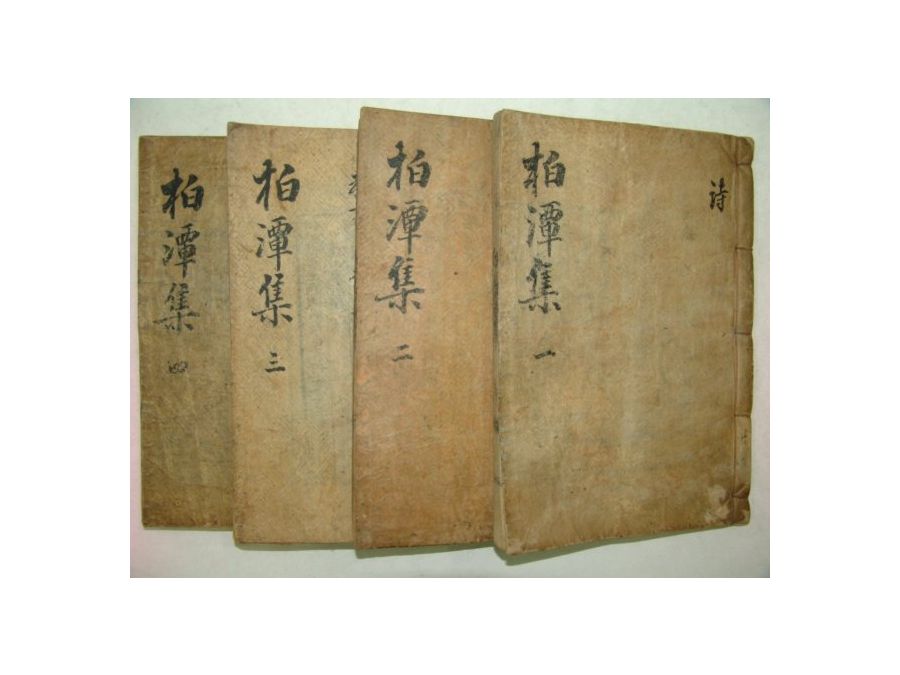 詩
柏潭集 一
柏潭集 二
柏潭集 三
柏潭集 四